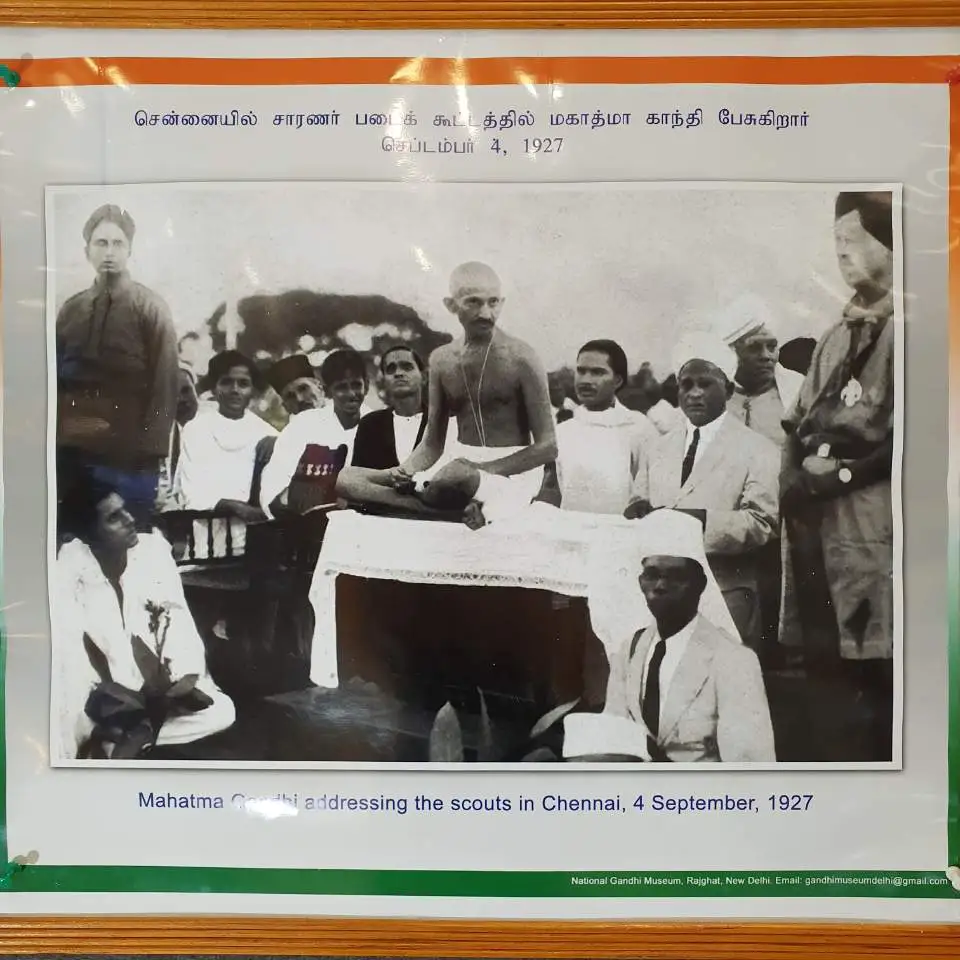 சென்னையில் சாரணர் படைக் கூட்டத்தில் மகாத்மா காந்தி பேசுகிறார்
செப்டம்பர் 4, 1927
Mahatma Gandhi addressing the scouts in Chennai, 4 September, 1927
National Gandhi Museum, Rajghat, New Delhi. Email: gandhimuseumdelhi@gmail.com